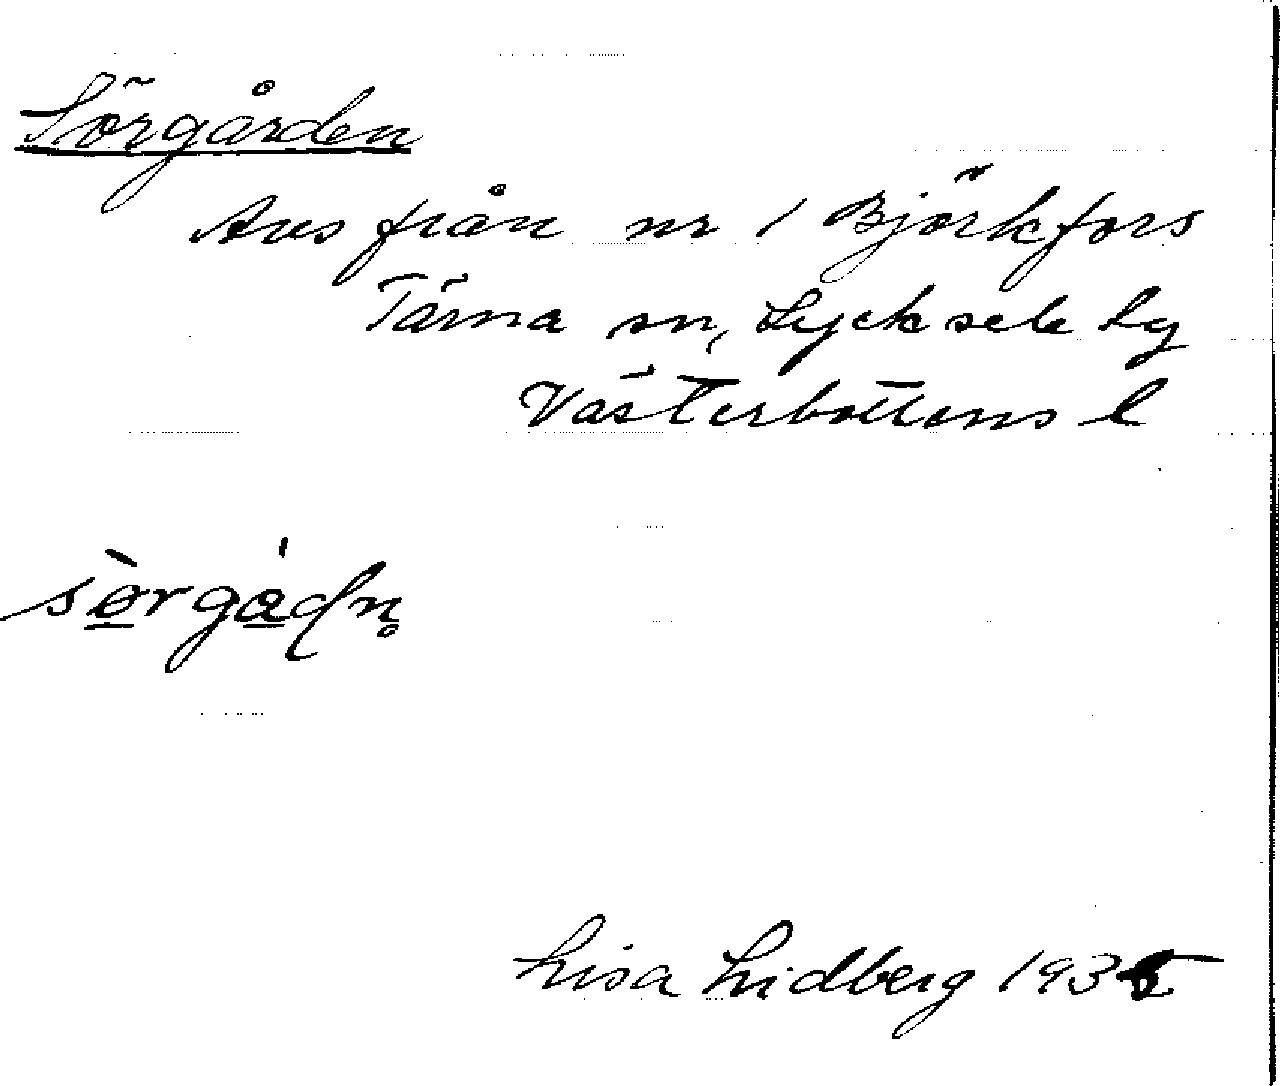 Sörgården
Avs från nr 1 Björkfors
Tärna sn, Lycksele lg
Västerbottens l
sòrgádn̥
Lisa Lidberg 1935